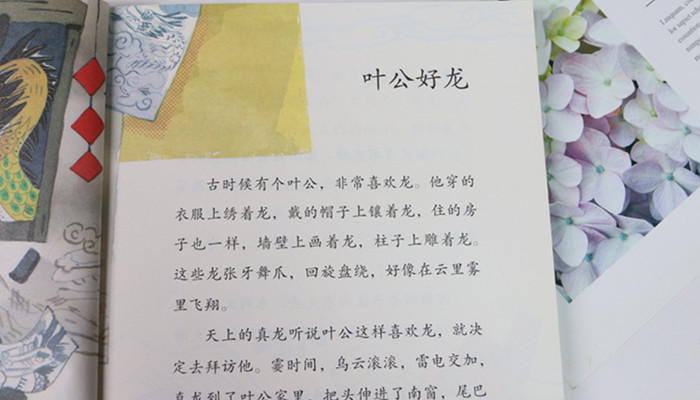 叶公好龙
古时候有个叶公，非常喜欢龙。他穿的
衣服上绣着龙，戴的帽子上镶着龙，住的房
子也一样，墙壁上画着龙，柱子上雕着龙。
这些龙张牙舞爪，回旋盘绕，好像在云里雾
里飞翔。
天上的真龙听说叶公这样喜欢龙，就决
定去拜访他。霎时间，乌云滚滚，雷电交加，
真龙到了叶公家里，把头伸进了南窗，尾巴